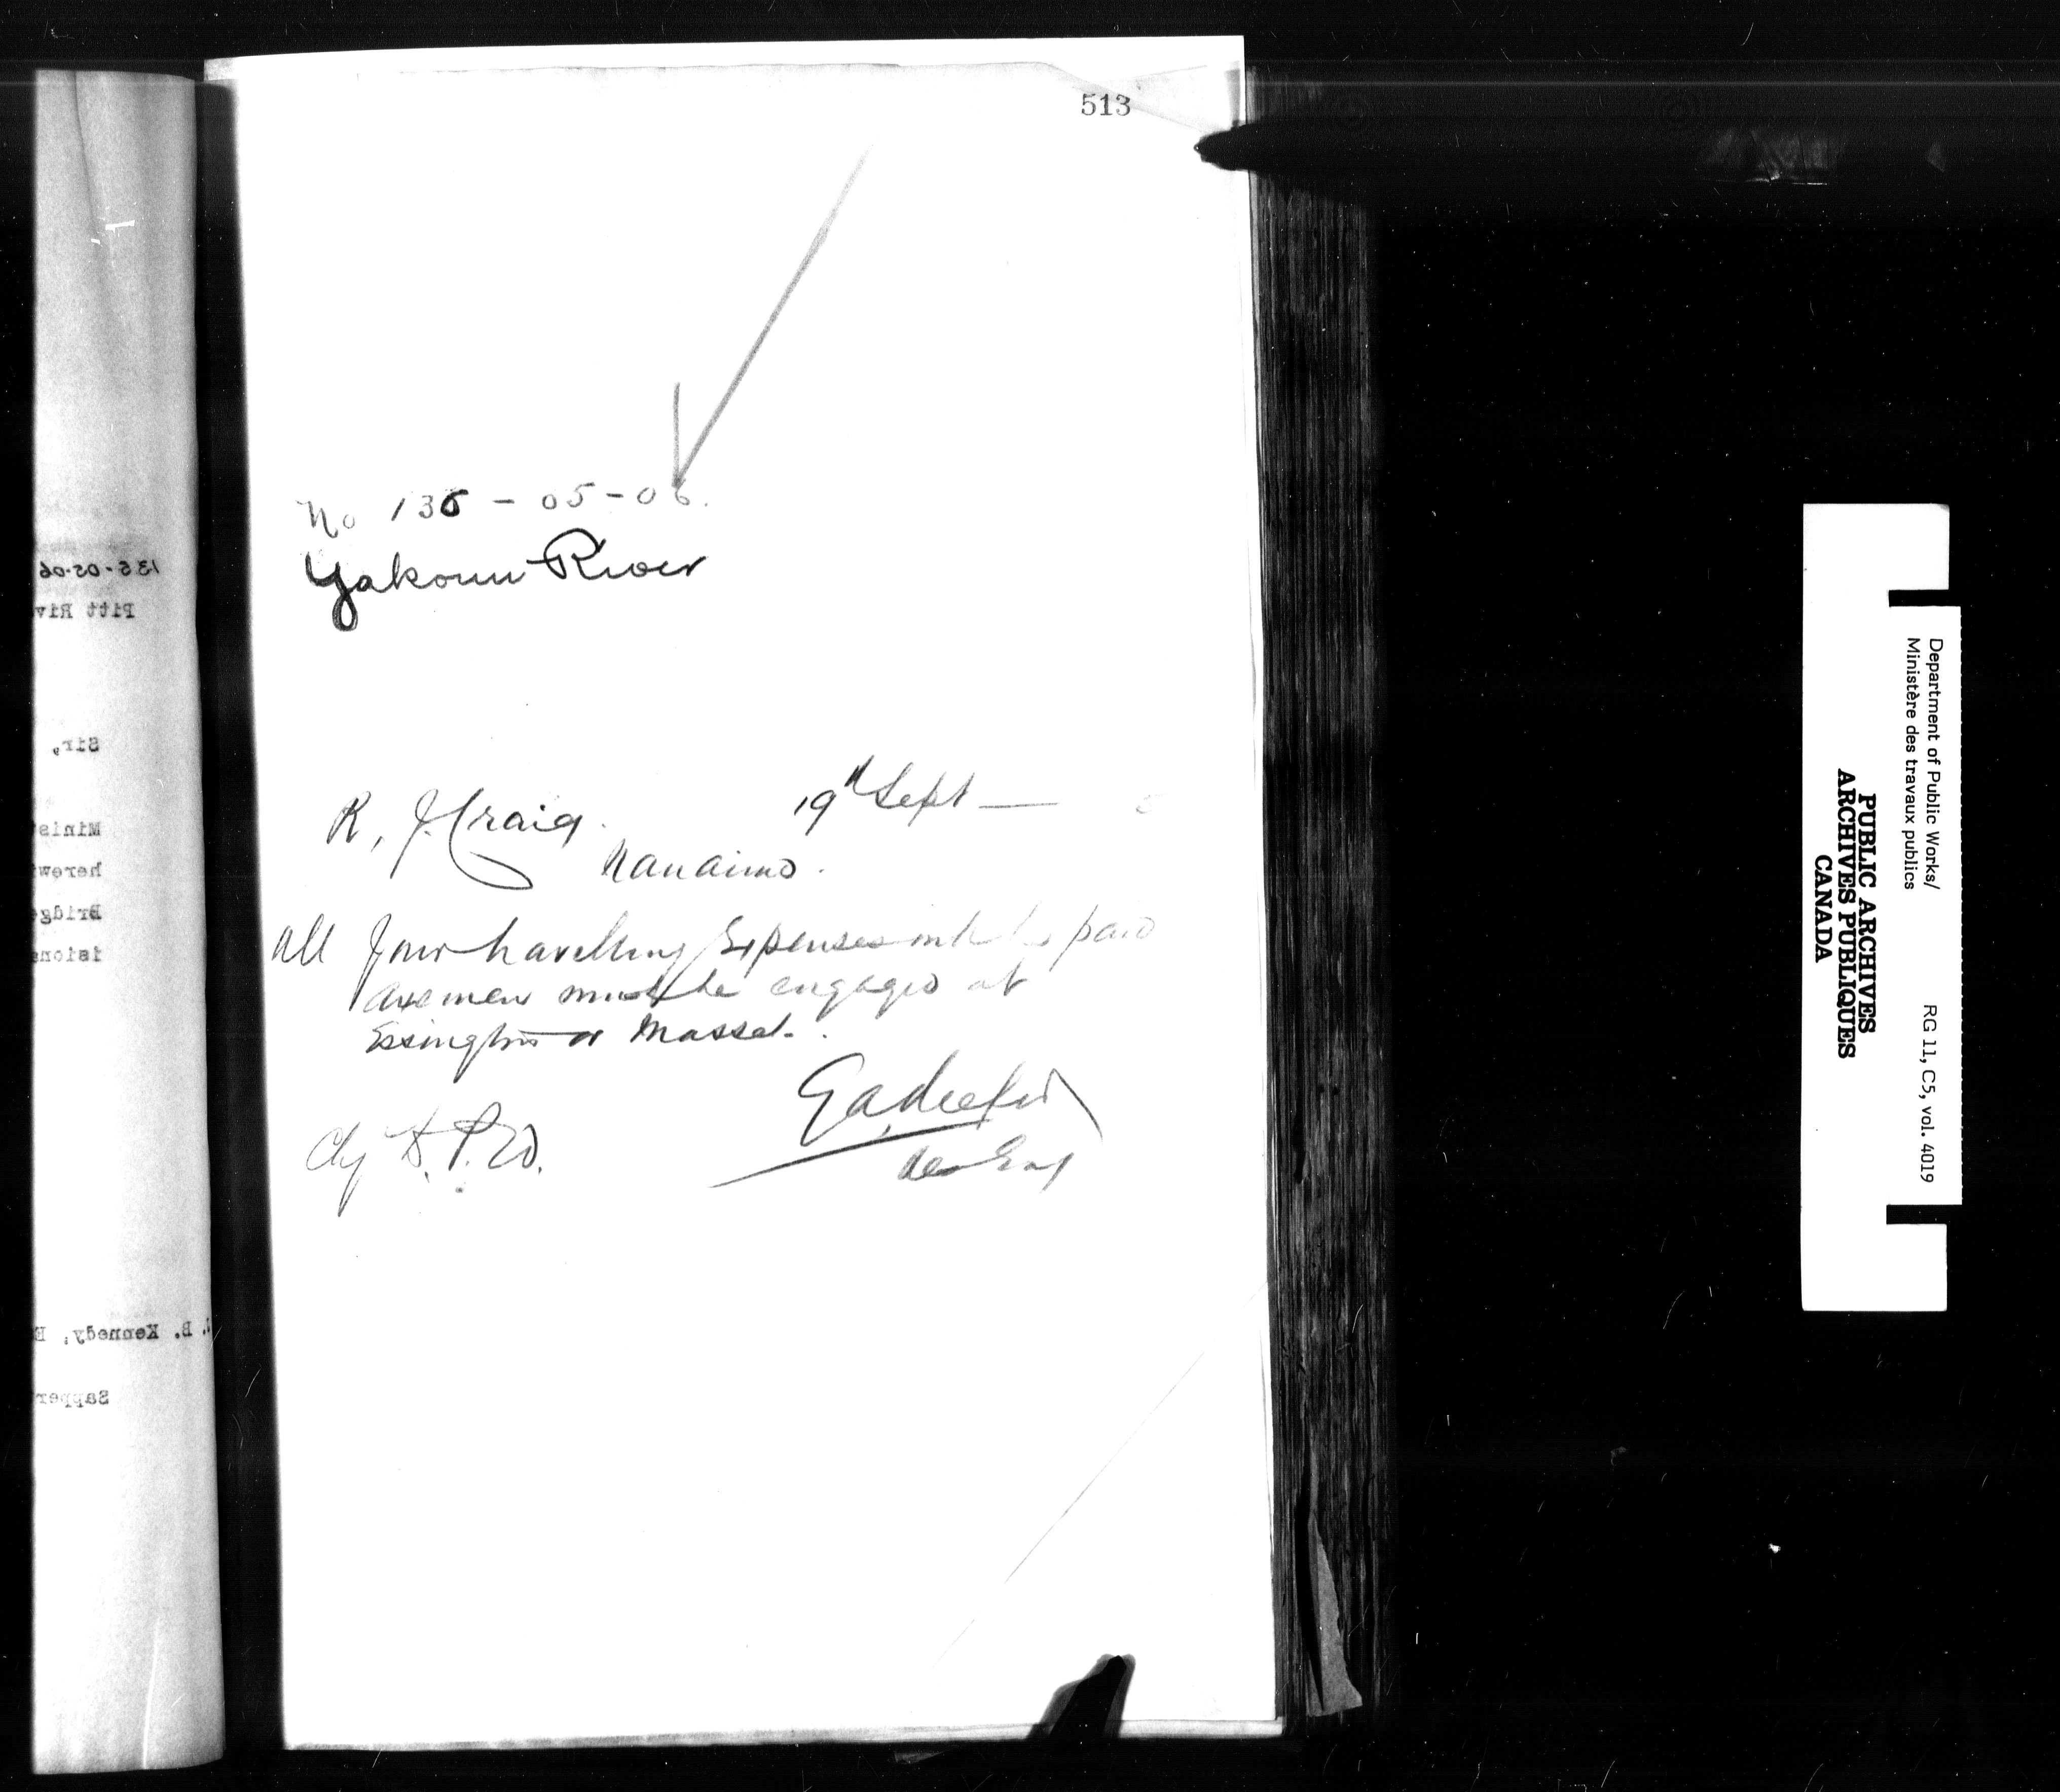 513
No 136 - 05-06.
Yakoun River
19th Sept — 5
R, J. Craig.
Nanaimo.
All your travelling Expenses will be paid
axemen must be engaged at
Essington or Masset.
Chg D.P.W.
Res Eng
135-05-06
Pitt Riv
Sir,
Minis
herew
Bridg
isions
J. B. Kennedy, E
Sapper
Department of Public Works/
Ministère des travaux publics
RG 11, C5, vol. 4019
PUBLIC ARCHIVES
ARCHIVES PUBLIQUES
CANADA